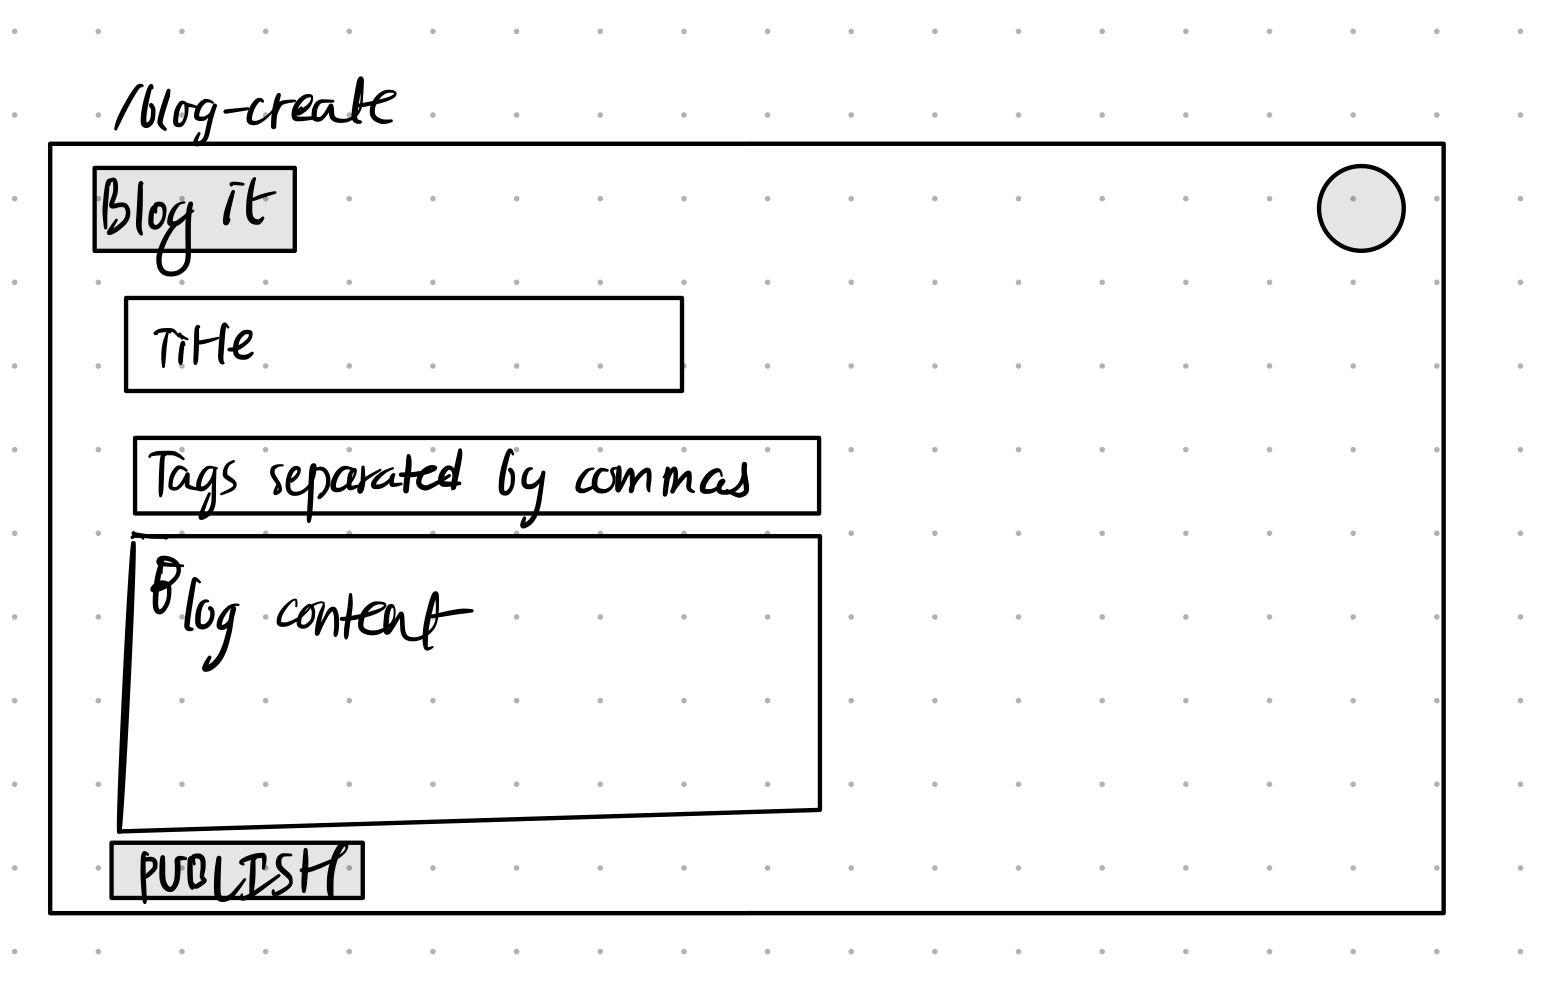 /blog-create
Blog it
Title
Tags separated by commas
Blog content
PUBLISH